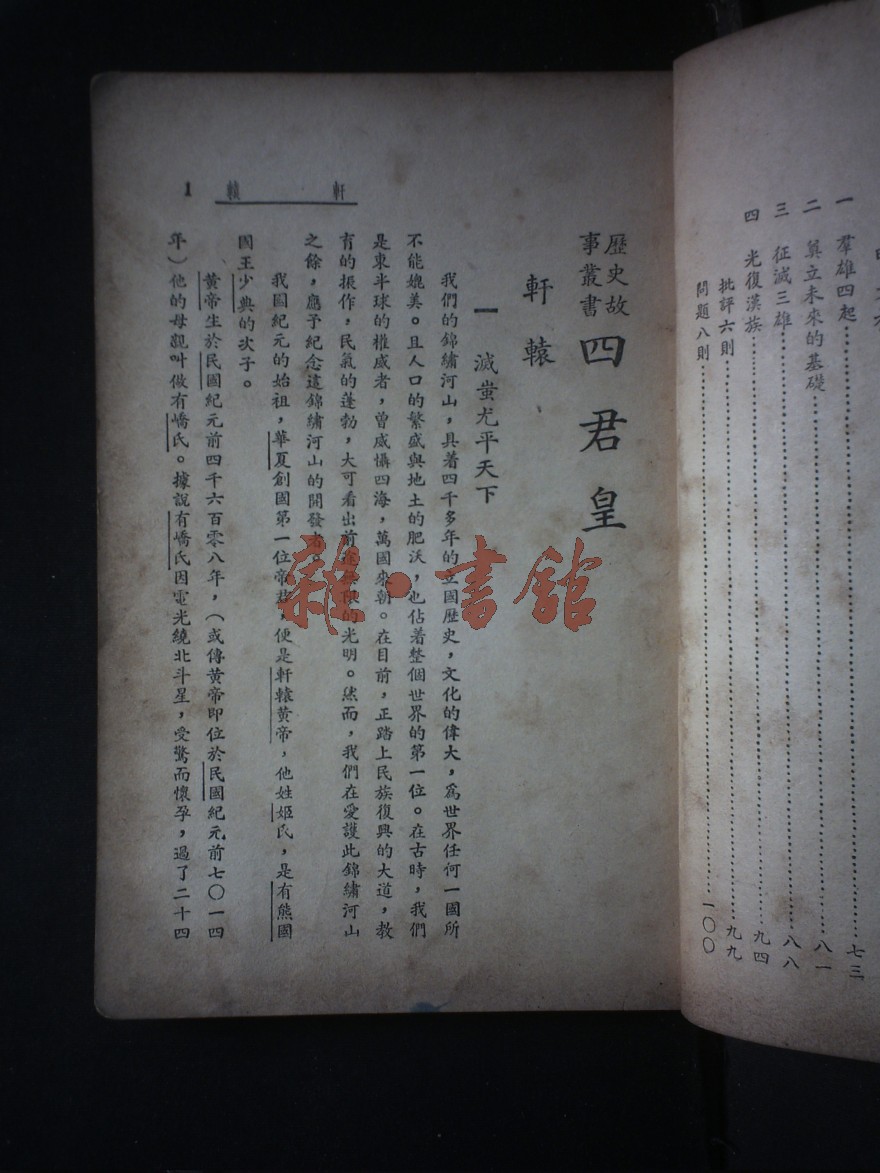 一 羣雄四起…………七三
二 奠立未來的基礎…………八一
三 征滅三雄…………八八
四 光復漢族…………九四
批評六則…………九九
問題八則…………一〇〇
軒轅
1
歷史故
事叢書
四君皇
軒轅
一 滅蚩尤平天下
我們的錦繡河山，具著四千多年的立國歷史，文化的偉大，爲世界任何一國所
不能媲美。且人口的繁盛與地土的肥沃，也佔着整個世界的第一位。在古時，我們
是東半球的權威者，曾威懾四海，萬國來朝。在目前，正踏上民族復興的大道，教
育的振作，民氣的蓬勃，大可看出前途無限的光明。然而，我們在愛護此錦繡河山
之餘，應予紀念這錦繡河山的開發者。
我國紀元的始祖，華夏創國第一位帝君，便是軒轅黃帝，他姓姬氏，是有熊國
國王少典的次子。
黃帝生於民國紀元前四千六百零八年，（或傳黃帝即位於民國紀元前七〇一四
年）他的母親叫做有嶠氏。據說有嶠氏因電光繞北斗星，受驚而懷孕，過了二十四
雜·書館